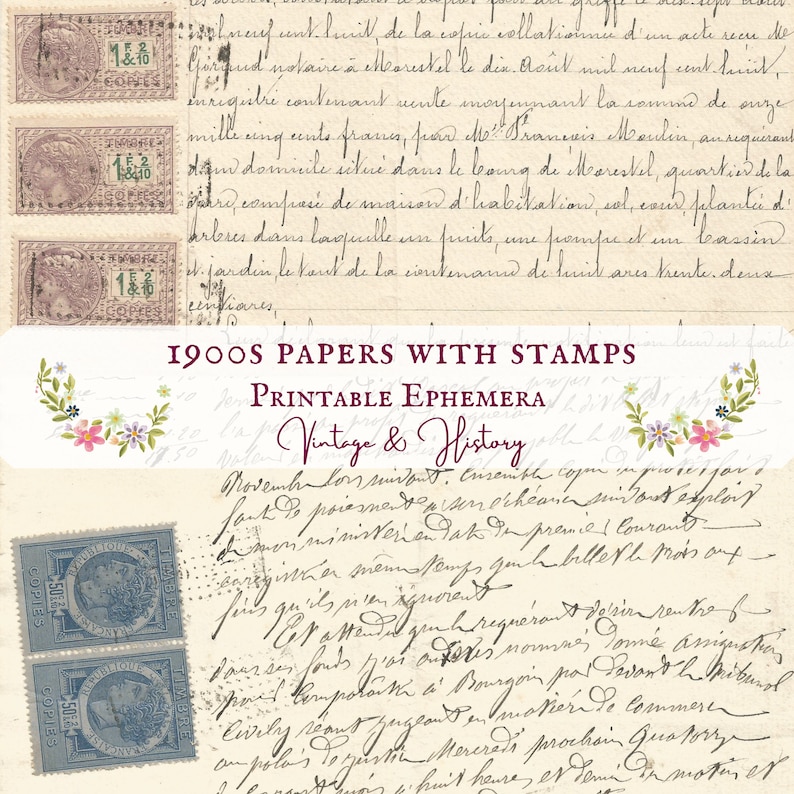 TIMBRE
1F.2
&10
COPIES
TIMBRE
1F.2
&10
COPIES
TIMBRE
1F.2
&10
COPIES
mil neuf cent huit, de la copie collationnée d'un acte reçu Me
notaire à Morestel le dix Août mil neuf cent huit,
enregistré contenant vente moyennant la somme de onze
mille cinq cents francs, par Mr François Moulin, au requérant
d'un domicile situé dans le bourg de Morestel, quartier de la
composé de maison d'habitation, sol, cour, plantée d'
arbres dans laquelle un puits, une pompe et un bassin
et jardin, le tout de la contenance de huit ares trente-deux
centiares,
1900s Papers with Stamps
Printable Ephemera
Vintage & History
Novembre lors suivant. Ensemble copie du protêt fait
faute de paiement à son échéance suivant exploit
de mon ministère en date du premier courant
enregistré en même temps que le billet le trois aux
fins qu'ils n'en ignorent
Et attendu que le requérant désire rentrer
dans ses fonds j'ai aux susnommés donné assignation
pour comparaître à Bourgoin par devant le tribunal
civil, séant jugeant en matière de commerce
au palais de justice Mercredi prochain Quatorze
à huit heures et demie du matin et
TIMBRE
RÉPUBLIQUE FRANÇAISE
50c.2
COPIES
TIMBRE
RÉPUBLIQUE FRANÇAISE
50c.2
COPIES